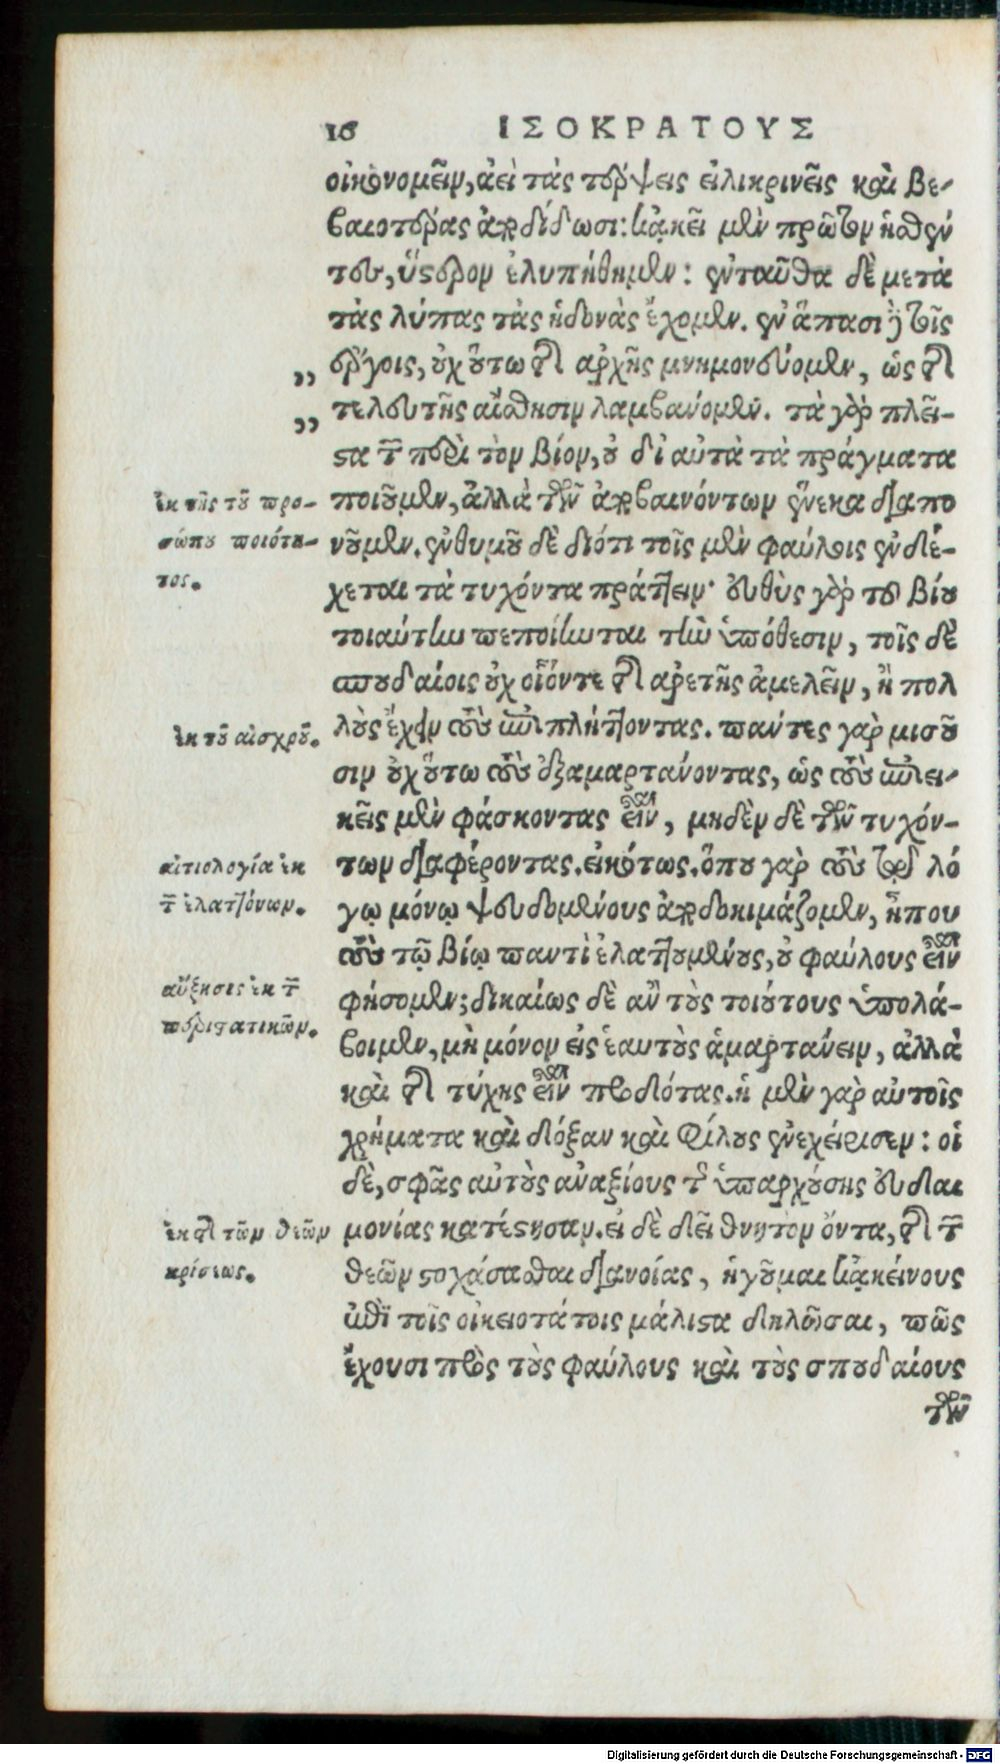 16 ΙΣΟΚΡΑΤΟΥΣ
οἰκονομεῖν, ἀεὶ τὰς τέρψεις εἰλικρινεῖς καὶ βε-
βαιοτέρας ἀποδίδωσι: κἀκεῖ μὲν πρῶτον ἡσθέν
τες, ὕστερον ἐλυπήθημεν: ἐνταῦθα δὲ μετὰ
τὰς λύπας τὰς ἡδονὰς ἔχομεν. ἐν ἅπασι δὲ τοῖς
„ ἔργοις, οὐχ οὕτω τῆς ἀρχῆς μνημονεύομεν, ὡς τῆς
„ τελευτῆς αἴσθησιν λαμβάνομεν. τὰ γὰρ πλεῖ-
στα τῶν περὶ τὸν βίον, οὐ δι αὐτὰ τὰ πράγματα
ποιοῦμεν, ἀλλὰ τῶν ἀποβαινόντων ἕνεκα διαπο
νοῦμεν. ἐνθυμοῦ δὲ διότι τοῖς μὲν φαύλοις ἐνδέ-
χεται τὰ τυχόντα πράττειν· εὐθὺς γὰρ τοῦ βίου
τοιαύτην πεποίηνται τὴν ὑπόθεσιν, τοῖς δὲ
σπουδαίοις οὐχ οἷόντε τῆς ἀρετῆς ἀμελεῖν, ἢ πολ
λοὺς ἔχειν τοὺς ἐπιπλήττοντας. πάντες γὰρ μισοῦ
σιν οὐχ οὕτω τοὺς ἐξαμαρτάνοντας, ὡς τοὺς ἐπιει-
κεῖς μὲν φάσκοντας εἶναι, μηδὲν δὲ τῶν τυχόν-
των διαφέροντας. εἰκότως. ὅπου γὰρ τοὺς ἐπὶ λό
γῳ μόνῳ ψευδομένους ἀποδοκιμάζομεν, ἦπου
τοὺς τῷ βίῳ παντὶ ἐλαττουμένους, οὐ φαύλους εἶναι
φήσομεν; δικαίως δὲ ἂν τοὺς τοιούτους ὑπολά-
βοιμεν, μὴ μόνον εἰς ἑαυτοὺς ἁμαρτάνειν, ἀλλὰ
καὶ τῆς τύχης εἶναι προδότας. ἡ μὲν γὰρ αὐτοῖς
χρήματα καὶ δόξαν καὶ φίλους ἐνεχείρισεν: οἱ
δὲ, σφᾶς αὐτοὺς ἀναξίους τῆς ὑπαρχούσης εὐδαι
μονίας κατέστησαν. εἰ δὲ δεῖ θνητὸν ὄντα, τῆς τῶν
θεῶν στοχάσασθαι διανοίας, ἡγοῦμαι κἀκείνους
ἐπὶ τοῖς οἰκειοτάτοις μάλιστα δηλῶσαι, πῶς
ἔχουσι πρὸς τοὺς φαύλους καὶ τοὺς σπουδαίους
τῶν
ἐκ τῆς τοῦ προ-
σώπου ποιότη-
τος.
ἐκ τοῦ αἰσχροῦ.
αἰτιολογία ἐκ
τῶν ἐλαττόνων.
αὔξησις ἐκ τῶν
περιστατικῶν.
ἐκ τῆς τῶν θεῶν
κρίσεως.
Digitalisierung gefördert durch die Deutsche Forschungsgemeinschaft - DFG